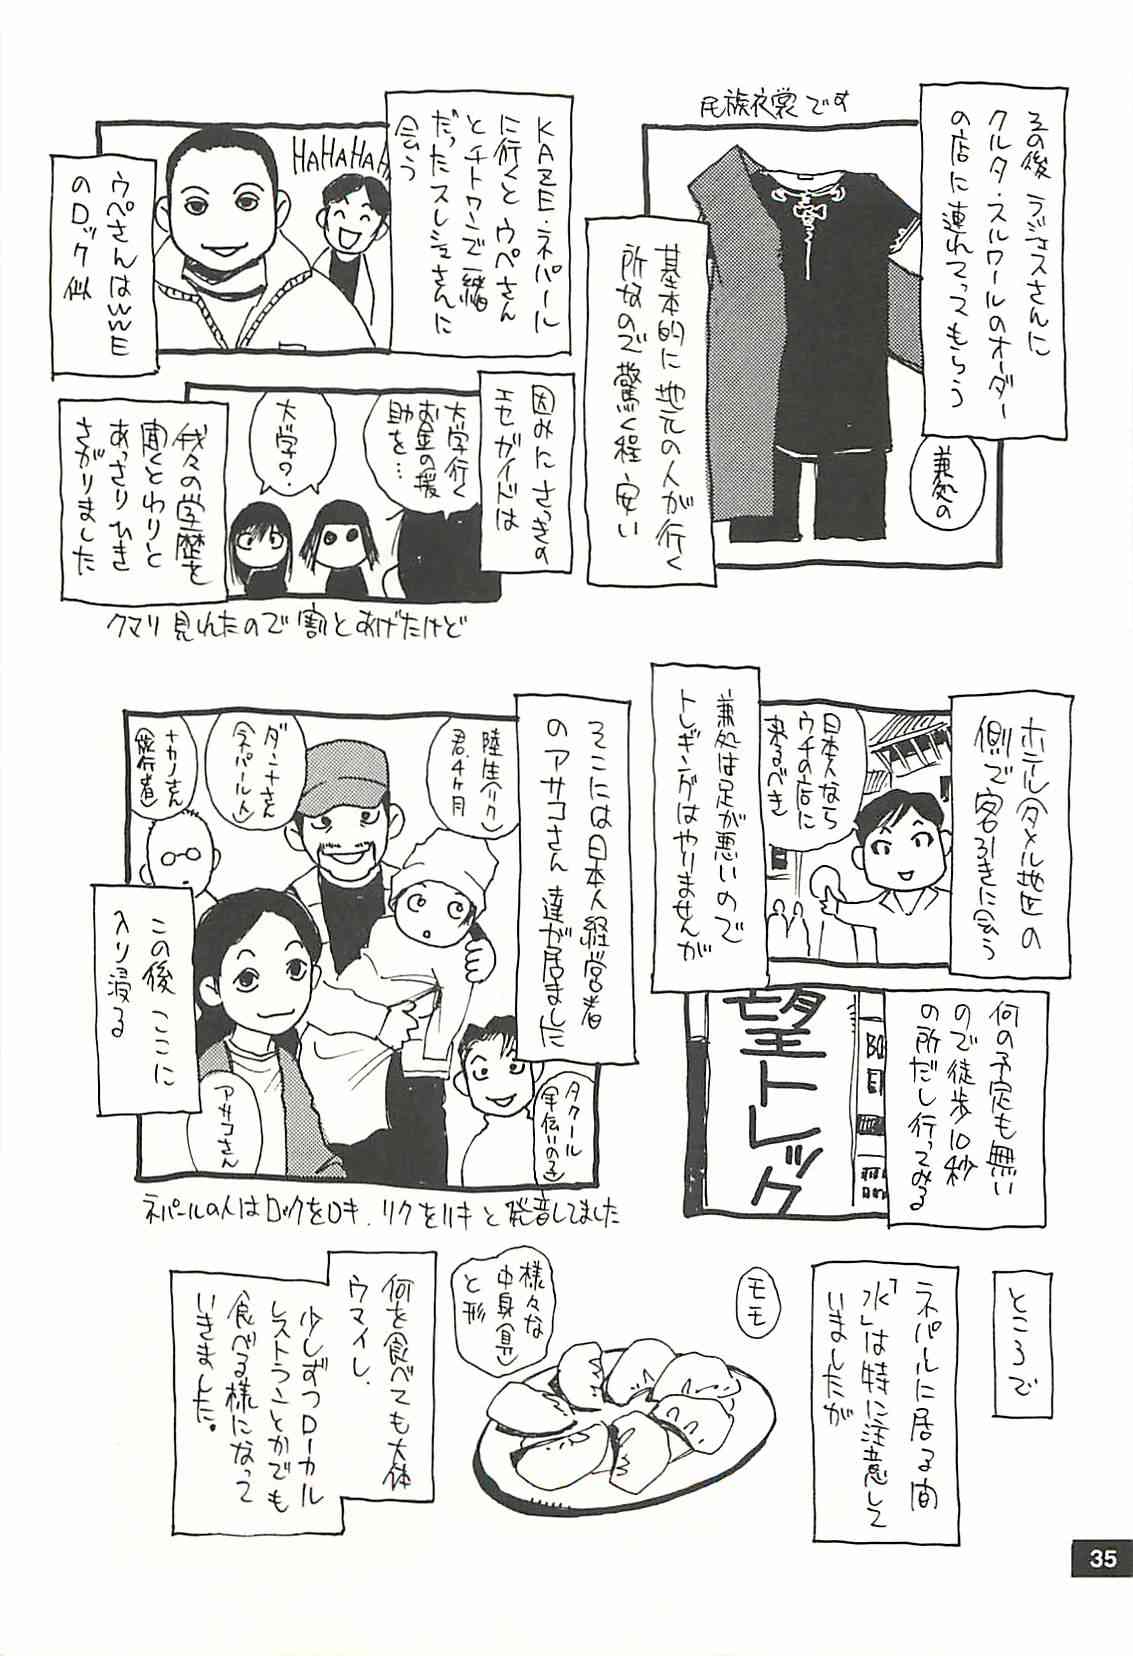 その後 ラジェスさんに
クルタ・スルワールのオーダー
の店に連れてってもらう
民族衣裳です
兼処の
基本的に地元の人が行く
所なので驚く程、安い
KAZE・ネパール
に行くと ウペさん
とチトワンで一緒
だったスレシュさんに
会う
HAHAHAHA
ウペさんはWWE
のロック似
因みに さっきの
エセガイドは
大学行く
お金の援
助を…
大学?
我々の学歴を
聞くとわりと
あっさりひき
さがりました
クマリ見れたので割とあげたけど
ホテル(タメル地区)の
側で客引きに会う
日本人なら
ウチの店に
来るべき
兼処は足が悪いので
トレッキングはやりませんが
何の予定も無い
ので徒歩10秒
の所だし行ってみる
望トレック
そこには日本人経営者
のアサコさん達が居ました
陸生(リク)
君.4ヶ月
ダンナさん
(ネパール人)
ナカノさん
(旅行者)
この後 ここに
入り浸る
アサコさん
タクール
(手伝いの子)
ネパールの人はロックをロキ、リクをリキと発音してました
ところで
ネパルに居る間
「水」は特に注意して
いましたが
モモ
様々な
中身(具)
と形
何を食べても大体
ウマイし、
少しずつローカル
レストランとかでも
食べる様になって
いきました。
35